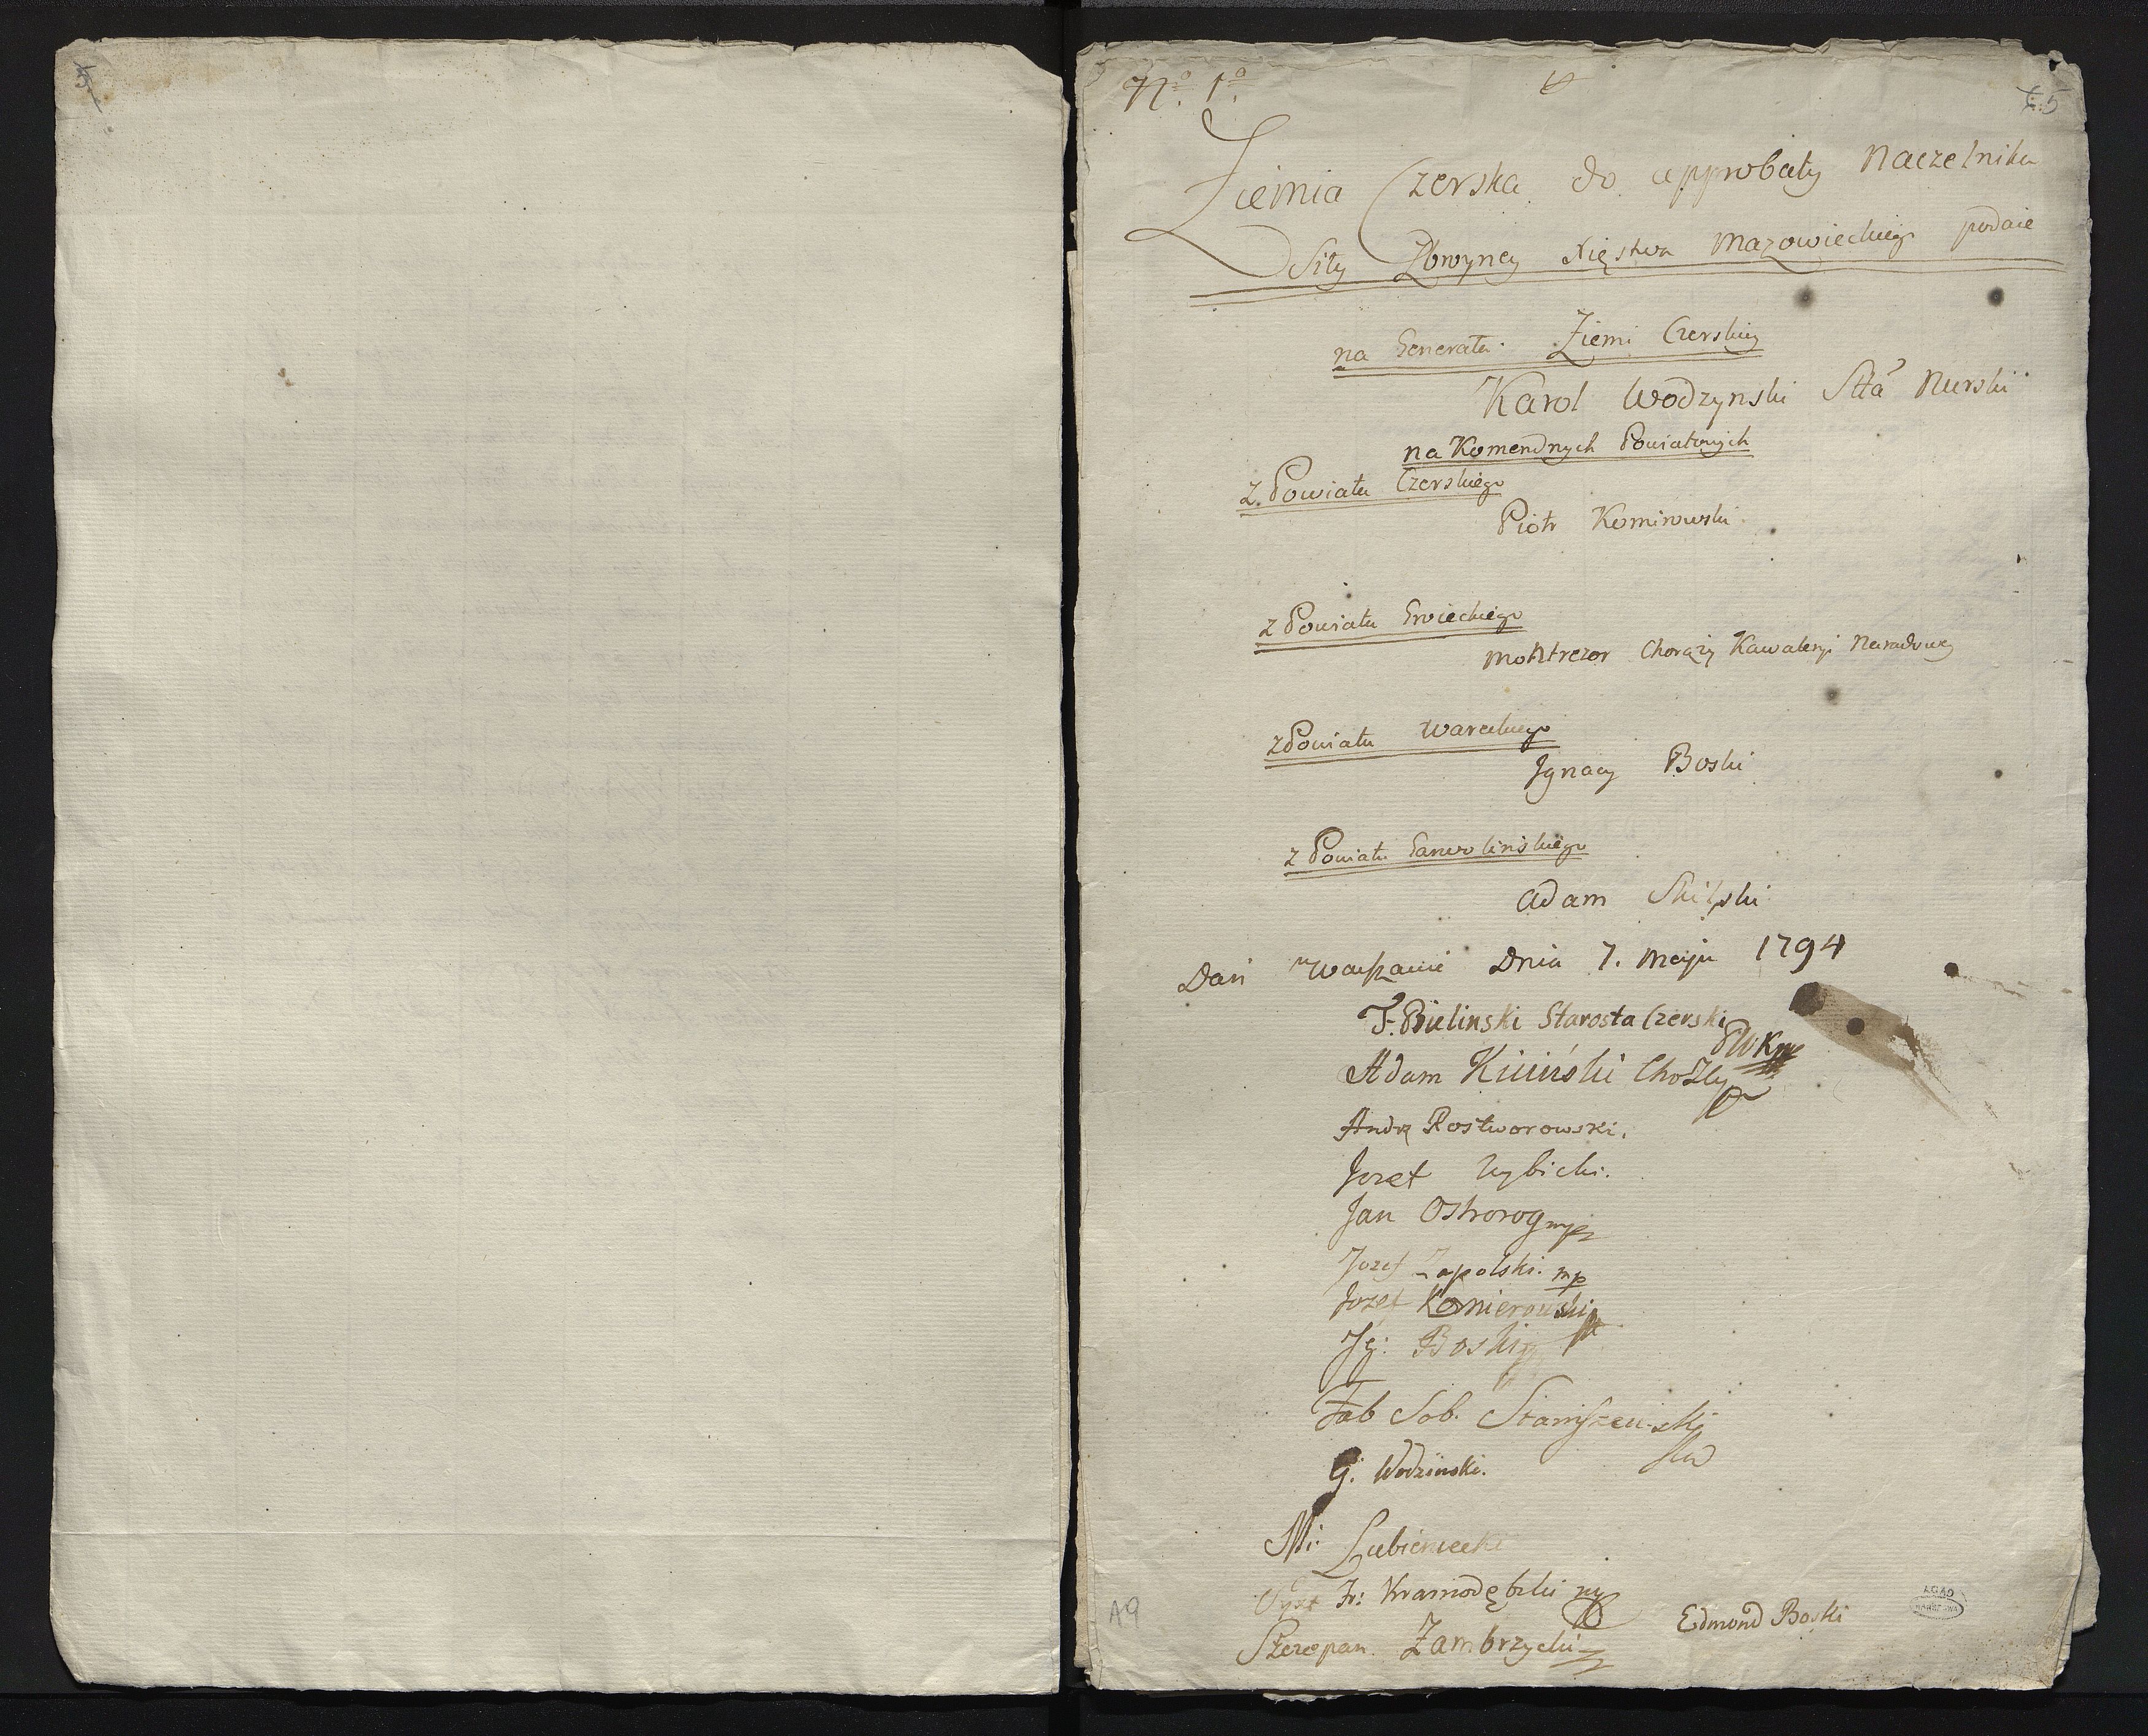 5
Nº. 1º.
5
Ziemia Czerska do approbaty Naczelnika
Siły Zbroyney Xięstwa Mazowieckiego podaie
na Generała Ziemi Czerskiey
Karol Wodzynski Stta Nurski
na Komendnych Powiatowych
z Powiatu Czerskiego
Piotr Komirowski
z Powiatu Groieckiego
Montrezor Chorąży Kawaleryi Narodowey
z Powiatu Wareckiego
Jgnacy Boski
z Powiatu Garwolinskiego
Adam Skilski
Dań w Warszawie Dnia 7. Maja 1794
F. Bielinski Starosta Czerski
Adam Kiciński
Andrz Rostworowski.
Jozef Wybicki.
Jan Ostrorog mp
Jozef Zapolski. mp
Jozef Komierowski
Jg: Boski
Fab Seb. Staniszewski
G. Wodzinski.
Mi: Lubieniecki
Fr: Krasnodębski mp
Szczepan Zambrzycki
Edmond Boski
AGAD
WARSZAWA
A9